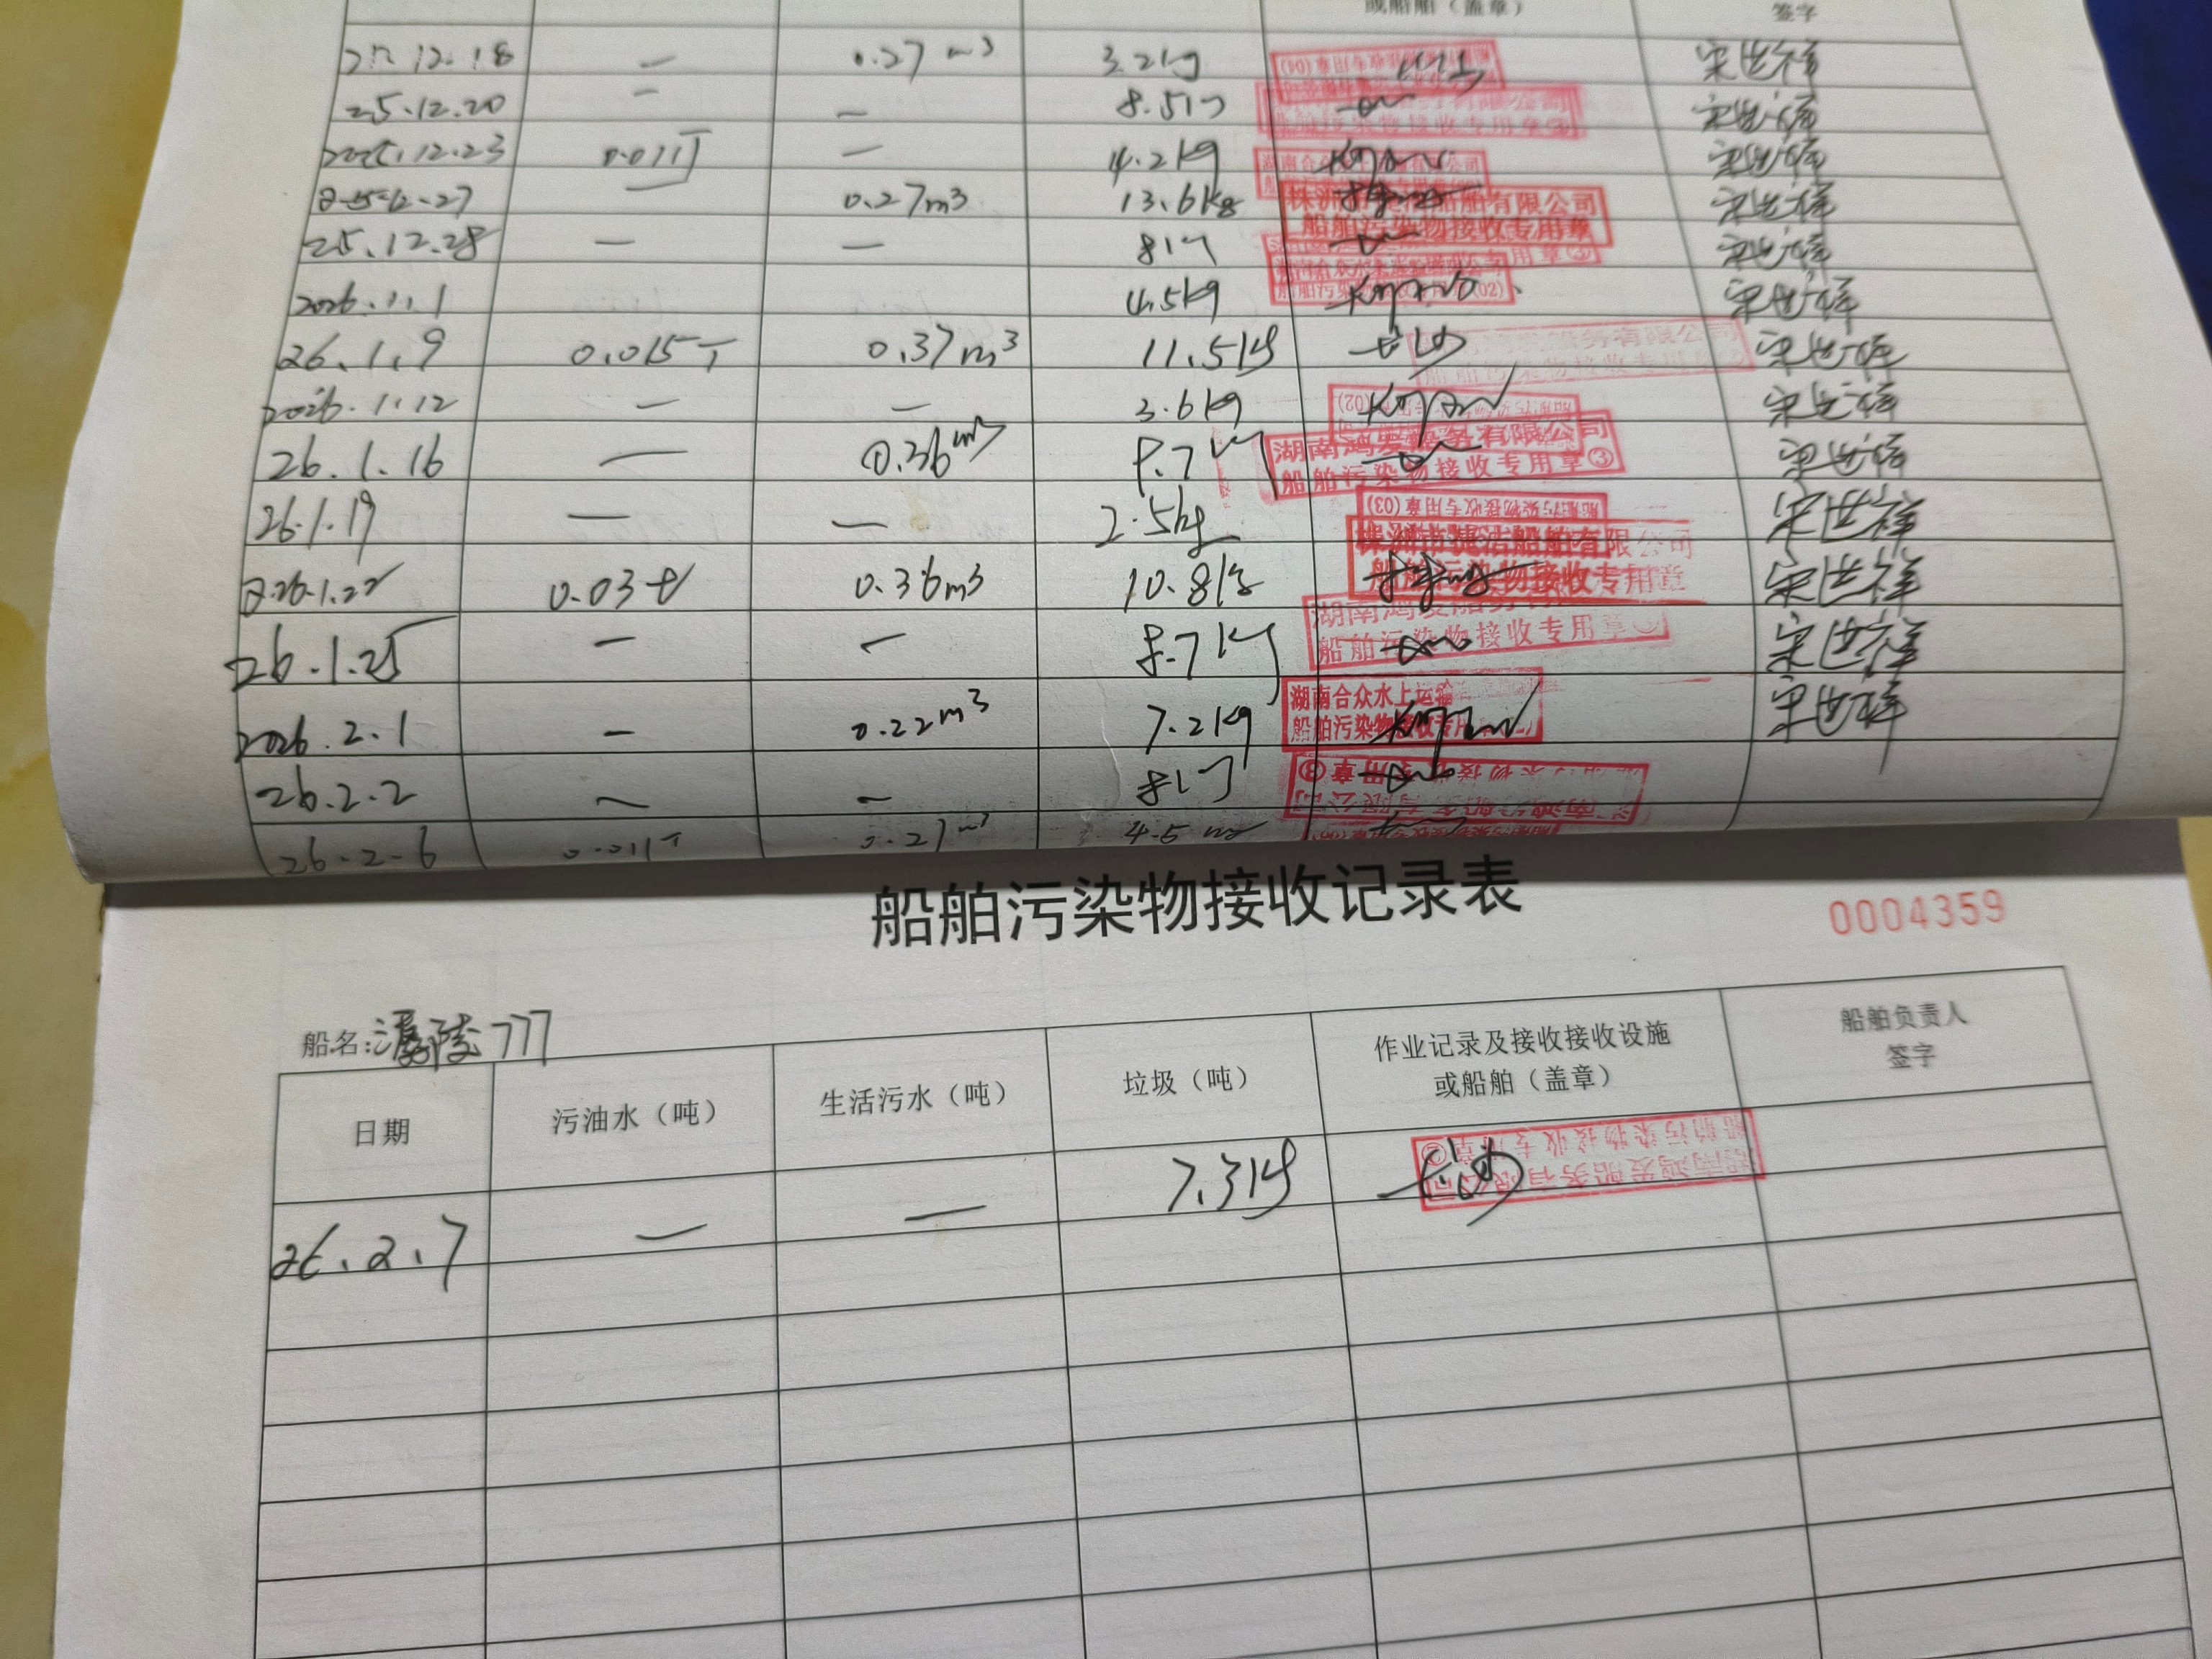 或船舶（盖章） 签字
25.12.18 — 0.27m³ 3.2kg
25.12.20 — — 8.5kg 宋世祥
2025.12.23 0.011T — 4.2kg 宋世祥
2025.12.27 — 0.27m3 13.6kg 船舶污染物接收专用章 宋世祥
25.12.28 — — 8kg 宋世祥
2026.1.1 4.5kg 宋世祥
26.1.9 0.015T 0.37m³ 11.5kg 长沙 宋世祥
2026.1.12 — — 3.6kg 宋世祥
26.1.16 — 0.36m³ 湖南鸿发船务有限公司 船舶污染物接收专用章③ 宋世祥
26.1.19 — — 2.5kg 船舶污染物接收专用章(03) 宋世祥
2026.1.22 0.03t 0.36m3 10.8kg 株洲市捷洁船舶有限公司 船舶污染物接收专用章 宋世祥
26.1.25 — — 8.7kg 船舶污染物接收专用章 宋世祥
2026.2.1 — 0.22m³ 7.2kg 湖南合众水上运输 船舶污染物接收专用 宋世祥
26.2.2 — — 8kg
26.2.6 0.011T 0.27m³ 4.5
船舶污染物接收记录表
0004359
船名：漫陵777
日期 污油水（吨） 生活污水（吨） 垃圾（吨） 作业记录及接收接收设施 或船舶（盖章） 船舶负责人 签字
26.2.7 — — 7.3kg 长沙 湖南鸿发船务有限公司 船舶污染物接收专用章②